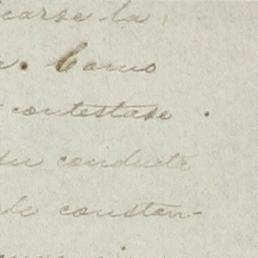 carse la
. Como
contestase .
su conducta
de constan-